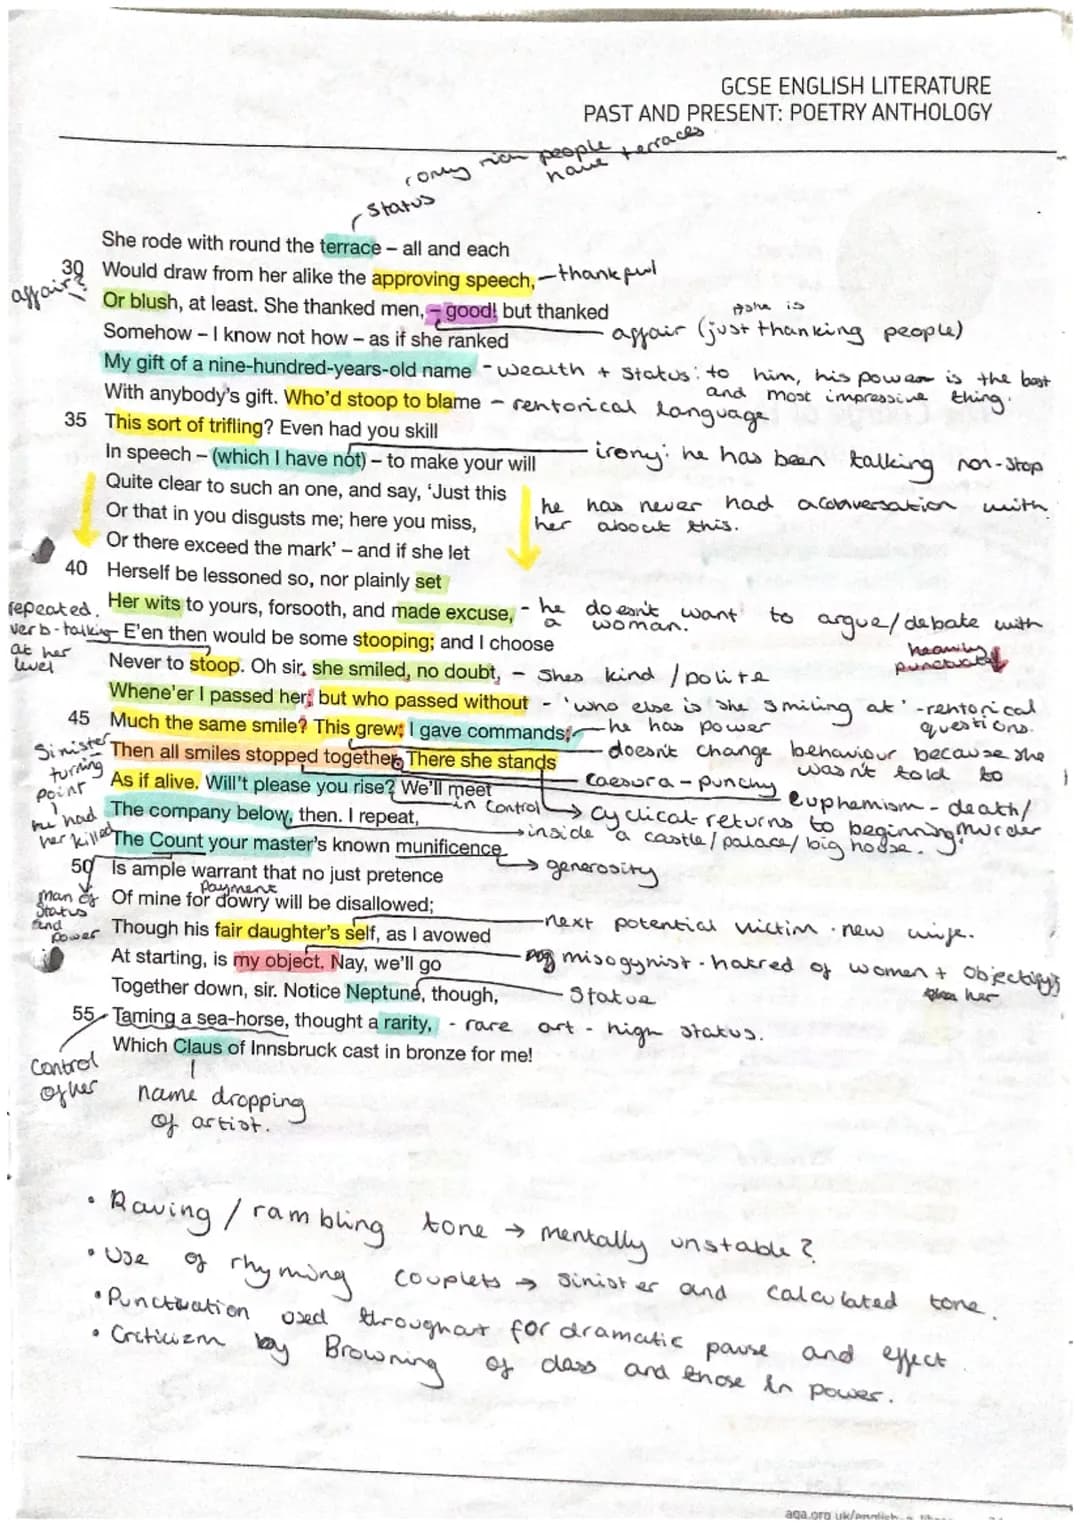 GCSE ENGLISH LITERATURE
PAST AND PRESENT: POETRY ANTHOLOGY
only rich people have terraces
Status
She rode with round the terrace – all and each
30 Would draw from her alike the approving speech, - thankful
affair?
Or blush, at least. She thanked men, – good! but thanked
→ she is
Somehow – I know not how – as if she ranked
affair (just thanking people)
My gift of a nine-hundred-years-old name - wealth + status: to him, his power is the best
and most impressive thing.
With anybody's gift. Who'd stoop to blame - rentorical language
35 This sort of trifling? Even had you skill
In speech – (which I have not) – to make your will
irony: he has been talking non-stop
Quite clear to such an one, and say, 'Just this
he has never had a conversation with
Or that in you disgusts me; here you miss,
her about this.
Or there exceed the mark' – and if she let
40 Herself be lessoned so, nor plainly set
Her wits to yours, forsooth, and made excuse, - he doesn't want to argue/debate with
a woman.
repeated verb - talking at her level
E'en then would be some stooping; and I choose
Never to stoop. Oh sir, she smiled, no doubt, - Shes kind / polite
Whene'er I passed her; but who passed without - 'who else is she smiling at' - rentorical
questions.
45 Much the same smile? This grew; I gave commands; - he has power
Sinister turning point
Then all smiles stopped together. There she stands
doesn't change behaviour because she
wasn't told to
As if alive. Will't please you rise? We'll meet
Caesura - punchy
in control
euphemism - death/
murder
he had her killed
The company below, then. I repeat,
Cyclical - returns to beginning
→ inside a castle/palace/big house.
The Count your master's known munificence
→ generosity
50 Is ample warrant that no just pretence
man of status and power
payment
Of mine for dowry will be disallowed;
Though his fair daughter's self, as I avowed
next potential victim - new wife.
At starting, is my object. Nay, we'll go
misogynist - hatred of women + objectify's
her
Together down, sir. Notice Neptune, though,
Statue
55 Taming a sea-horse, thought a rarity, - rare art - high status.
Which Claus of Innsbruck cast in bronze for me!
Control of her
name dropping
of artist.
• Raving / rambling tone → mentally unstable?
• Use of rhyming couplets → sinister and calculated tone.
• Punctuation used throughout for dramatic pause and effect.
• Criticizm by Browning of class and those in power.